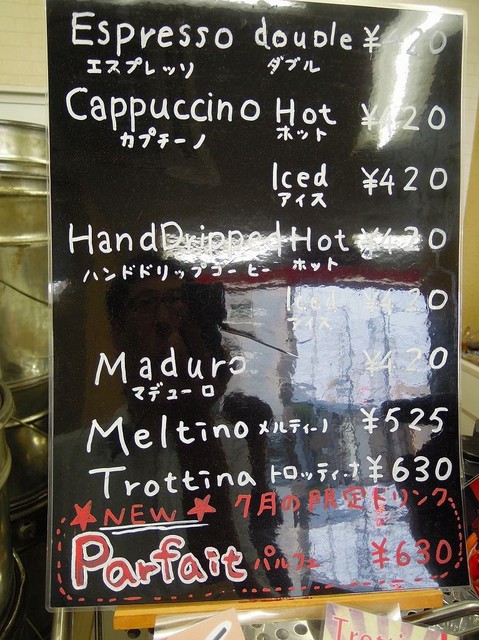 Espresso double ¥420
エスプレッソ ダブル
Cappuccino Hot ¥420
カプチーノ ホット
Iced ¥420
アイス
HandDripped Hot ¥420
ハンドドリップコーヒー ホット
Iced ¥420
アイス
Maduro ¥420
マデューロ
Meltino メルティーノ ¥525
Trottina トロッティーナ ¥630
NEW 7月の限定ドリンク
Parfait パルフェ ¥630